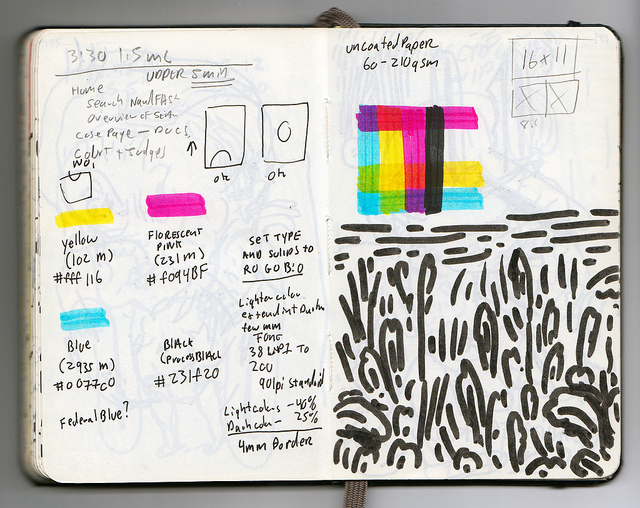 3:30 1.5 ML
UPPER 5mm
Home
Search Nav/FASC
Overview of
Case Page — Docs
Court + Judges
NO,
ok
ok
yellow
(102 m)
#fff 116
FLORESCENT
PINK
(231 m)
#f094BF
SET TYPE
AND SOLIDS TO
R0 G0 B:0
Blue
(2935 m)
#0077c0
Black
(process Black
#231f20
Lighter color
extend int Dark
few mm
38
TO
200
90lpi Standard
Federal Blue?
Light colors - 40%
Dark color - 25%
4mm Border
uncoated Paper
60-210gsm
16x11
X X